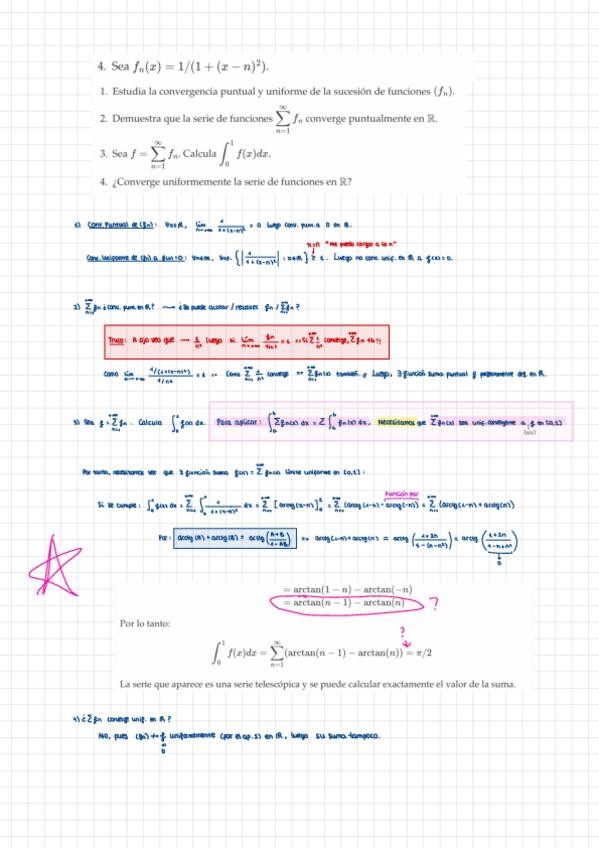 4. Sea fₙ(x) = 1/(1 + (x − n)²).
1. Estudia la convergencia puntual y uniforme de la sucesión de funciones (fₙ).
2. Demuestra que la serie de funciones ∑_{n=1}^{∞} fₙ converge puntualmente en ℝ.
3. Sea f = ∑_{n=1}^{∞} fₙ. Calcula ∫₀¹ f(x)dx.
4. ¿Converge uniformemente la serie de funciones en ℝ?
1) Conv. Puntual de (fn): ∀x∈ℝ, lim 1/(1+(x-n)²) = 0 luego conv. pun. a 0 en ℝ.
x=n "me puedo cargar a la n"
Conv. Uniforme de (fn) a f(x)=0: ∀n∈ℕ, sup {|1/(1+(x-n)²)| : x∈ℝ} ≥ 1. Luego no conv. unif. en ℝ a f(x)=0.
2) ∑fn ¿conv. pun. en ℝ? → ¿Se puede acotar / fn / ∑fn?
Truco: A ojo veo que → 1/n² luego si lim fn/(1/n²) = 1 → si ∑ 1/n² converge, ∑fn tb!!
Como lim (1/(1+(x-n)²))/(1/n²) = 1 ⇒ Como ∑ 1/n² converge ⇒ ∑fn(x) también. Luego, ∃ función suma puntual y def. en ℝ.
3) Sea f = ∑fn. Calcula ∫₀¹ f(x) dx. Para aplicar: ∫ₐᵇ ∑fn(x) dx = ∑∫ₐᵇ fn(x) dx, necesitamos que ∑fn(x) sea unif. convergente a f en [0,1]
Por tanto, necesitamos ver que ∃ función suma f(x) = ∑fn(x) límite uniforme en [0,1]:
Función impar
Si se cumple: ∫₀¹ f(x) dx = ∑ ∫₀¹ 1/(1+(x-n)²) dx = ∑ [arctg(x-n)]₀¹ = ∑ (arctg(1-n) - arctg(-n)) = ∑ (arctg(1-n) + arctg(n))
Por: arctg(A) + arctg(B) = arctg((A+B)/(1-AB)) ⇒ arctg(1-n) + arctg(n) =
= arctan(1 − n) − arctan(−n)
= arctan(n − 1) − arctan(n) ?
Por lo tanto:
?
∫₀¹ f(x)dx = ∑_{n=1}^{∞} (arctan(n − 1) − arctan(n)) = π/2
La serie que aparece es una serie telescópica y se puede calcular exactamente el valor de la suma.
4) ¿∑fn converge unif. en ℝ?
No, pues (fn) ↛ f uniformemente (por el ap. 1) en ℝ, luego su suma tampoco.
0